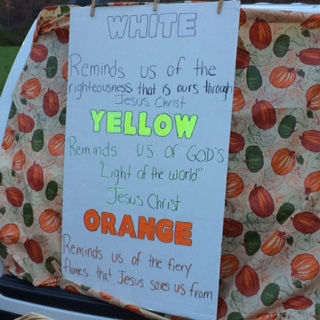 WHITE
Reminds us of the
righteousness that is ours through
Jesus Christ
YELLOW
Reminds us of GOD'S
"Light of the world"
Jesus Christ
ORANGE
Reminds us of the fiery
flames that Jesus saves us from